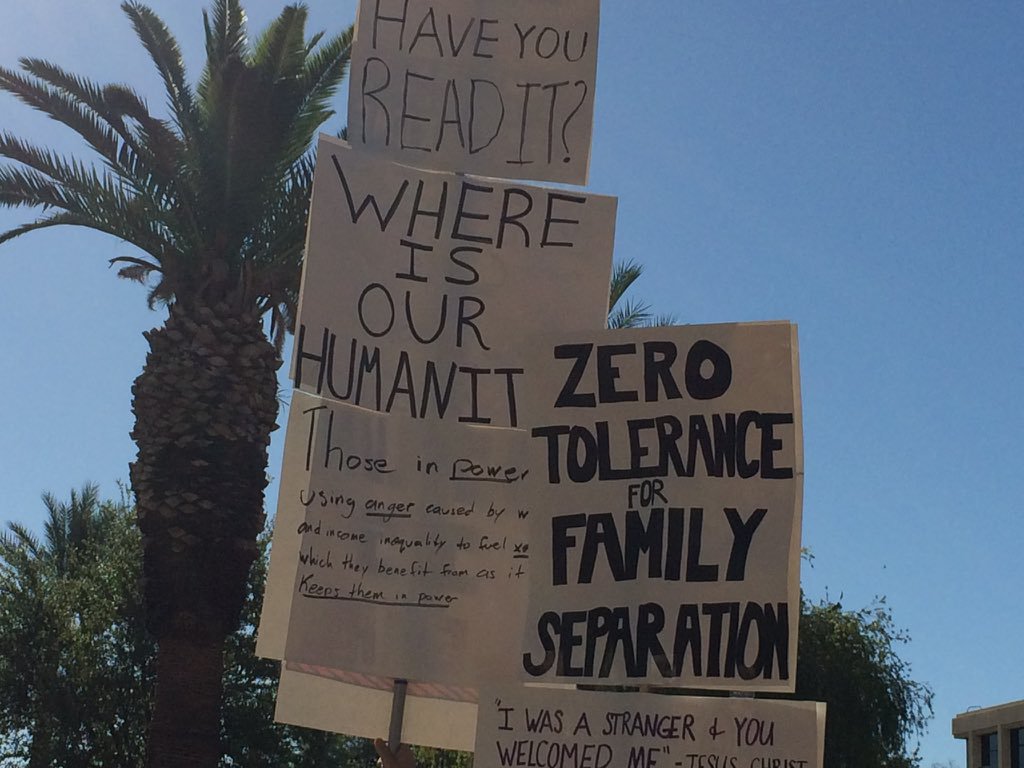 HAVE YOU
READ IT?
WHERE
IS
OUR
HUMANIT
Those in power
using anger caused by w
and income inequality to fuel xe
which they benefit from as it
Keeps them in power
ZERO
TOLERANCE
FOR
FAMILY
SEPARATION
"I WAS A STRANGER & YOU
WELCOMED ME" - JESUS CHRIST